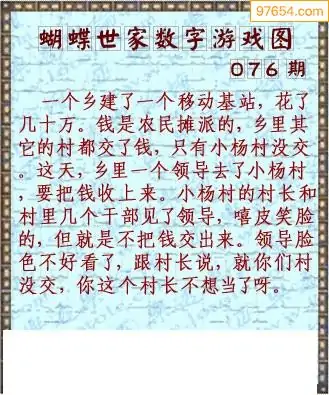 97654.com
蝴蝶世家数字游戏图
076期
一个乡建了一个移动基站，花了
几十万。钱是农民摊派的，乡里其
它的村都交了钱，只有小杨村没交
。这天，乡里一个领导去了小杨村
，要把钱收上来。小杨村的村长和
村里几个干部见了领导，嘻皮笑脸
的，但就是不把钱交出来。领导脸
色不好看了，跟村长说，就你们村
没交，你这个村长不想当了呀。